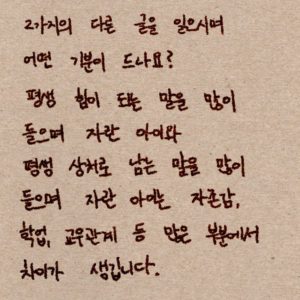 2가지의 다른 글을 읽으시며
어떤 기분이 드나요?
평생 힘이 되는 말을 많이
들으며 자란 아이와
평생 상처로 남는 말을 많이
들으며 자란 아이는 자존감,
학업, 교우관계 등 많은 부분에서
차이가 생깁니다.